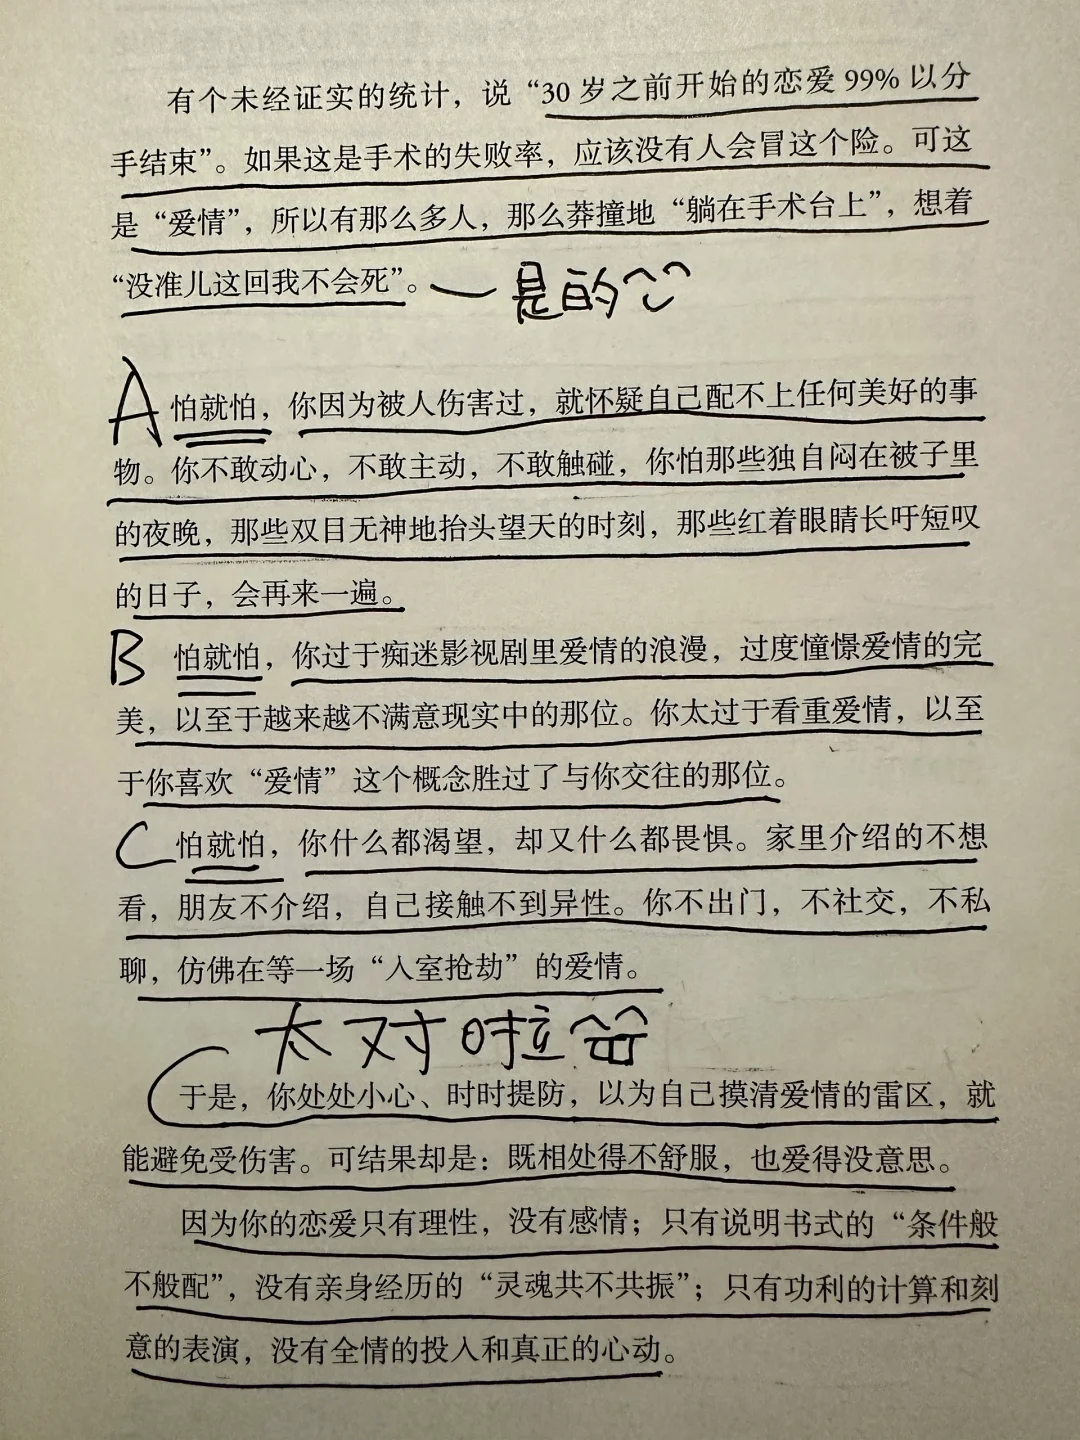 有个未经证实的统计，说“30 岁之前开始的恋爱 99% 以分
手结束”。如果这是手术的失败率，应该没有人会冒这个险。可这
是“爱情”，所以有那么多人，那么莽撞地“躺在手术台上”，想着
“没准儿这回我不会死”。一是的
A 怕就怕，你因为被人伤害过，就怀疑自己配不上任何美好的事
物。你不敢动心，不敢主动，不敢触碰，你怕那些独自闷在被子里
的夜晚，那些双目无神地抬头望天的时刻，那些红着眼睛长吁短叹
的日子，会再来一遍。
B 怕就怕，你过于痴迷影视剧里爱情的浪漫，过度憧憬爱情的完
美，以至于越来越不满意现实中的那位。你太过于看重爱情，以至
于你喜欢“爱情”这个概念胜过了与你交往的那位。
C 怕就怕，你什么都渴望，却又什么都畏惧。家里介绍的不想
看，朋友不介绍，自己接触不到异性。你不出门，不社交，不私
聊，仿佛在等一场“入室抢劫”的爱情。
太对啦
于是，你处处小心、时时提防，以为自己摸清爱情的雷区，就
能避免受伤害。可结果却是：既相处得不舒服，也爱得没意思。
因为你的恋爱只有理性，没有感情；只有说明书式的“条件般
不般配”，没有亲身经历的“灵魂共不共振”；只有功利的计算和刻
意的表演，没有全情的投入和真正的心动。